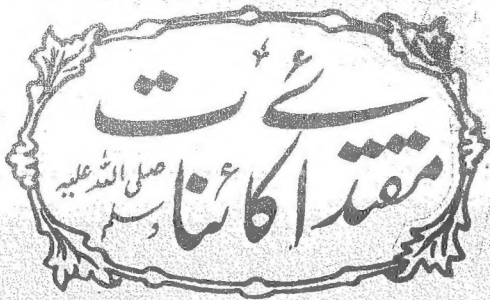 مقتدائے کائنات
صلی اللہ علیہ
وسلم